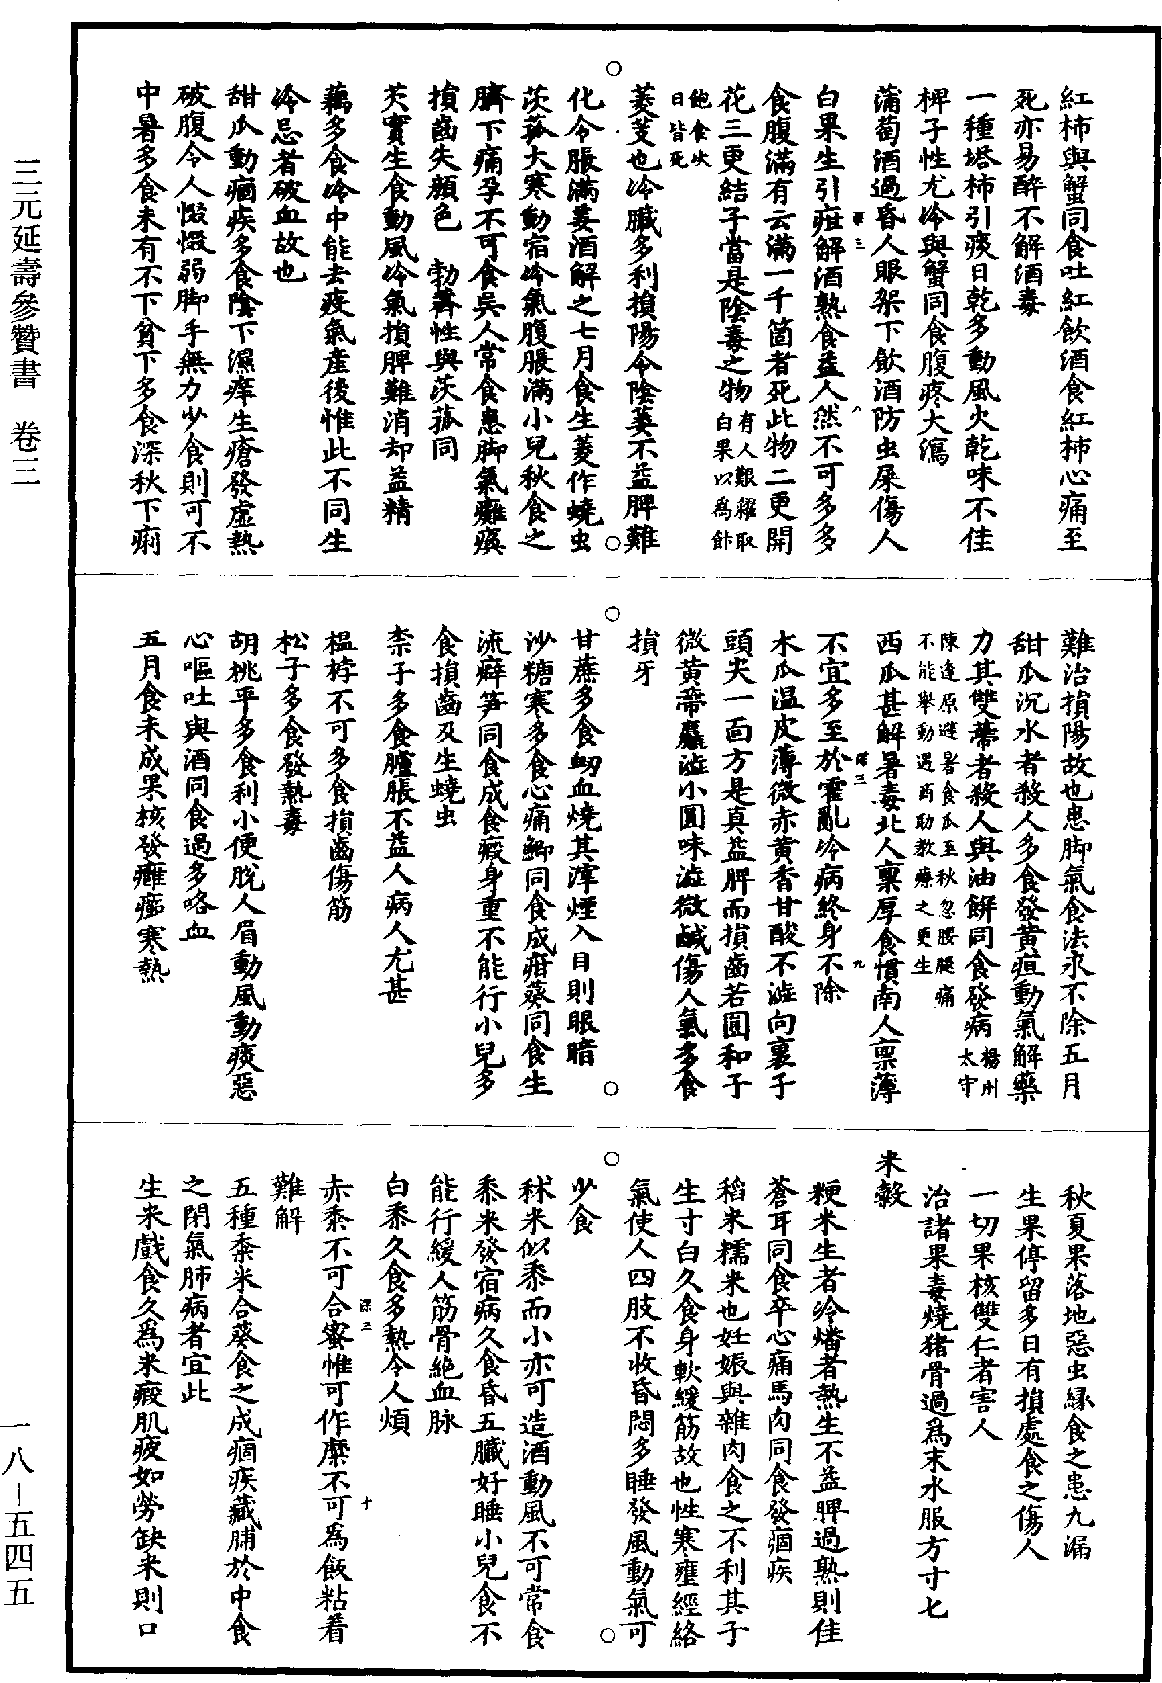 紅柿與蟹同食吐紅飲酒食紅柿心痛至
死亦易醉不解酒毒
一種塔柿引痰日乾多動風火乾味不佳
椑子性尤冷與蟹同食腹疼大瀉
蒲萄酒過昏人眼架下飲酒防虫屎傷人
白果生引疳解酒熟食益人然不可多多
食腹滿有云滿一千箇者死此物二更開
花三更結子當是陰毒之物有人艱糴取白果以為飰
飽食次日皆死
菱芰也冷臟多利損陽令陰萎不益脾難
化令脹滿姜酒解之七月食生菱作蟯虫
茨菰大寒動宿冷氣腹脹滿小兒秋食之
臍下痛孕不可食吳人常食患脚氣癱瘓
損齒失顔色 勃薺性與茨菰同
芡實生食動風冷氣損脾難消却益精
藕多食冷中能去疫氣產後惟此不同生
冷忌者破血故也
甜瓜動痼疾多食陰下濕痒生瘡發虛熱
破腹令人惙惙弱脚手無力少食則可不
中暑多食未有不下貧下多食深秋下痢
難治損陽故也患脚氣食法永不除五月
甜瓜沉水者殺人多食發黃疸動氣解藥
力其雙蒂者殺人與油餅同食發病楊州太守
陳逢原避暑食瓜至秋忽腰腿痛不能舉動遇商助教療之更生
西瓜甚解暑毒北人稟厚食慣南人稟薄
不宜多至於霍亂冷病終身不除
木瓜温皮薄微赤黃香甘酸不澁向裏子
頭尖一面方是真益脾而損齒若圓和子
微黃蒂麤澁小圓味澁微鹹傷人氣多食
損牙
甘蔗多食衂血燒其滓煙入目則眼暗
沙糖寒多食心痛鯽同食成疳葵同食生
流癖笋同食成食瘕身重不能行小兒多
食損齒及生蟯虫
柰子多食臚脹不益人病人尤甚
榅桲不可多食損齒傷筋
松子多食發熱毒
胡桃平多食利小便脫人眉動風動痰惡
心嘔吐與酒同食過多咯血
五月食未成果核發癰癤寒熱
秋夏果落地惡虫緣食之患九漏
生果停留多日有損處食之傷人
一切果核雙仁者害人
治諸果毒燒猪骨過為末水服方寸匕
米穀
粳米生者冷燔者熱生不益脾過熟則佳
蒼耳同食卒心痛馬肉同食發痼疾
稻米糯米也妊娠與雜肉食之不利其子
生寸白久食身軟緩筋故也性寒壅經絡
氣使人四肢不收昏悶多睡發風動氣可
少食
秫米似黍而小亦可造酒動風不可常食
黍米發宿病久食昏五臟好睡小兒食不
能行緩人筋骨絕血脉
白黍久食多熱令人煩
赤黍不可合蜜惟可作糜不可為飯粘着
難解
五種黍米合葵食之成痼疾藏脯於中食
之閉氣肺病者宜此
生米戲食久為米瘕肌疲如勞缺米則口
三元延壽參贊書 卷三
一八—五四五